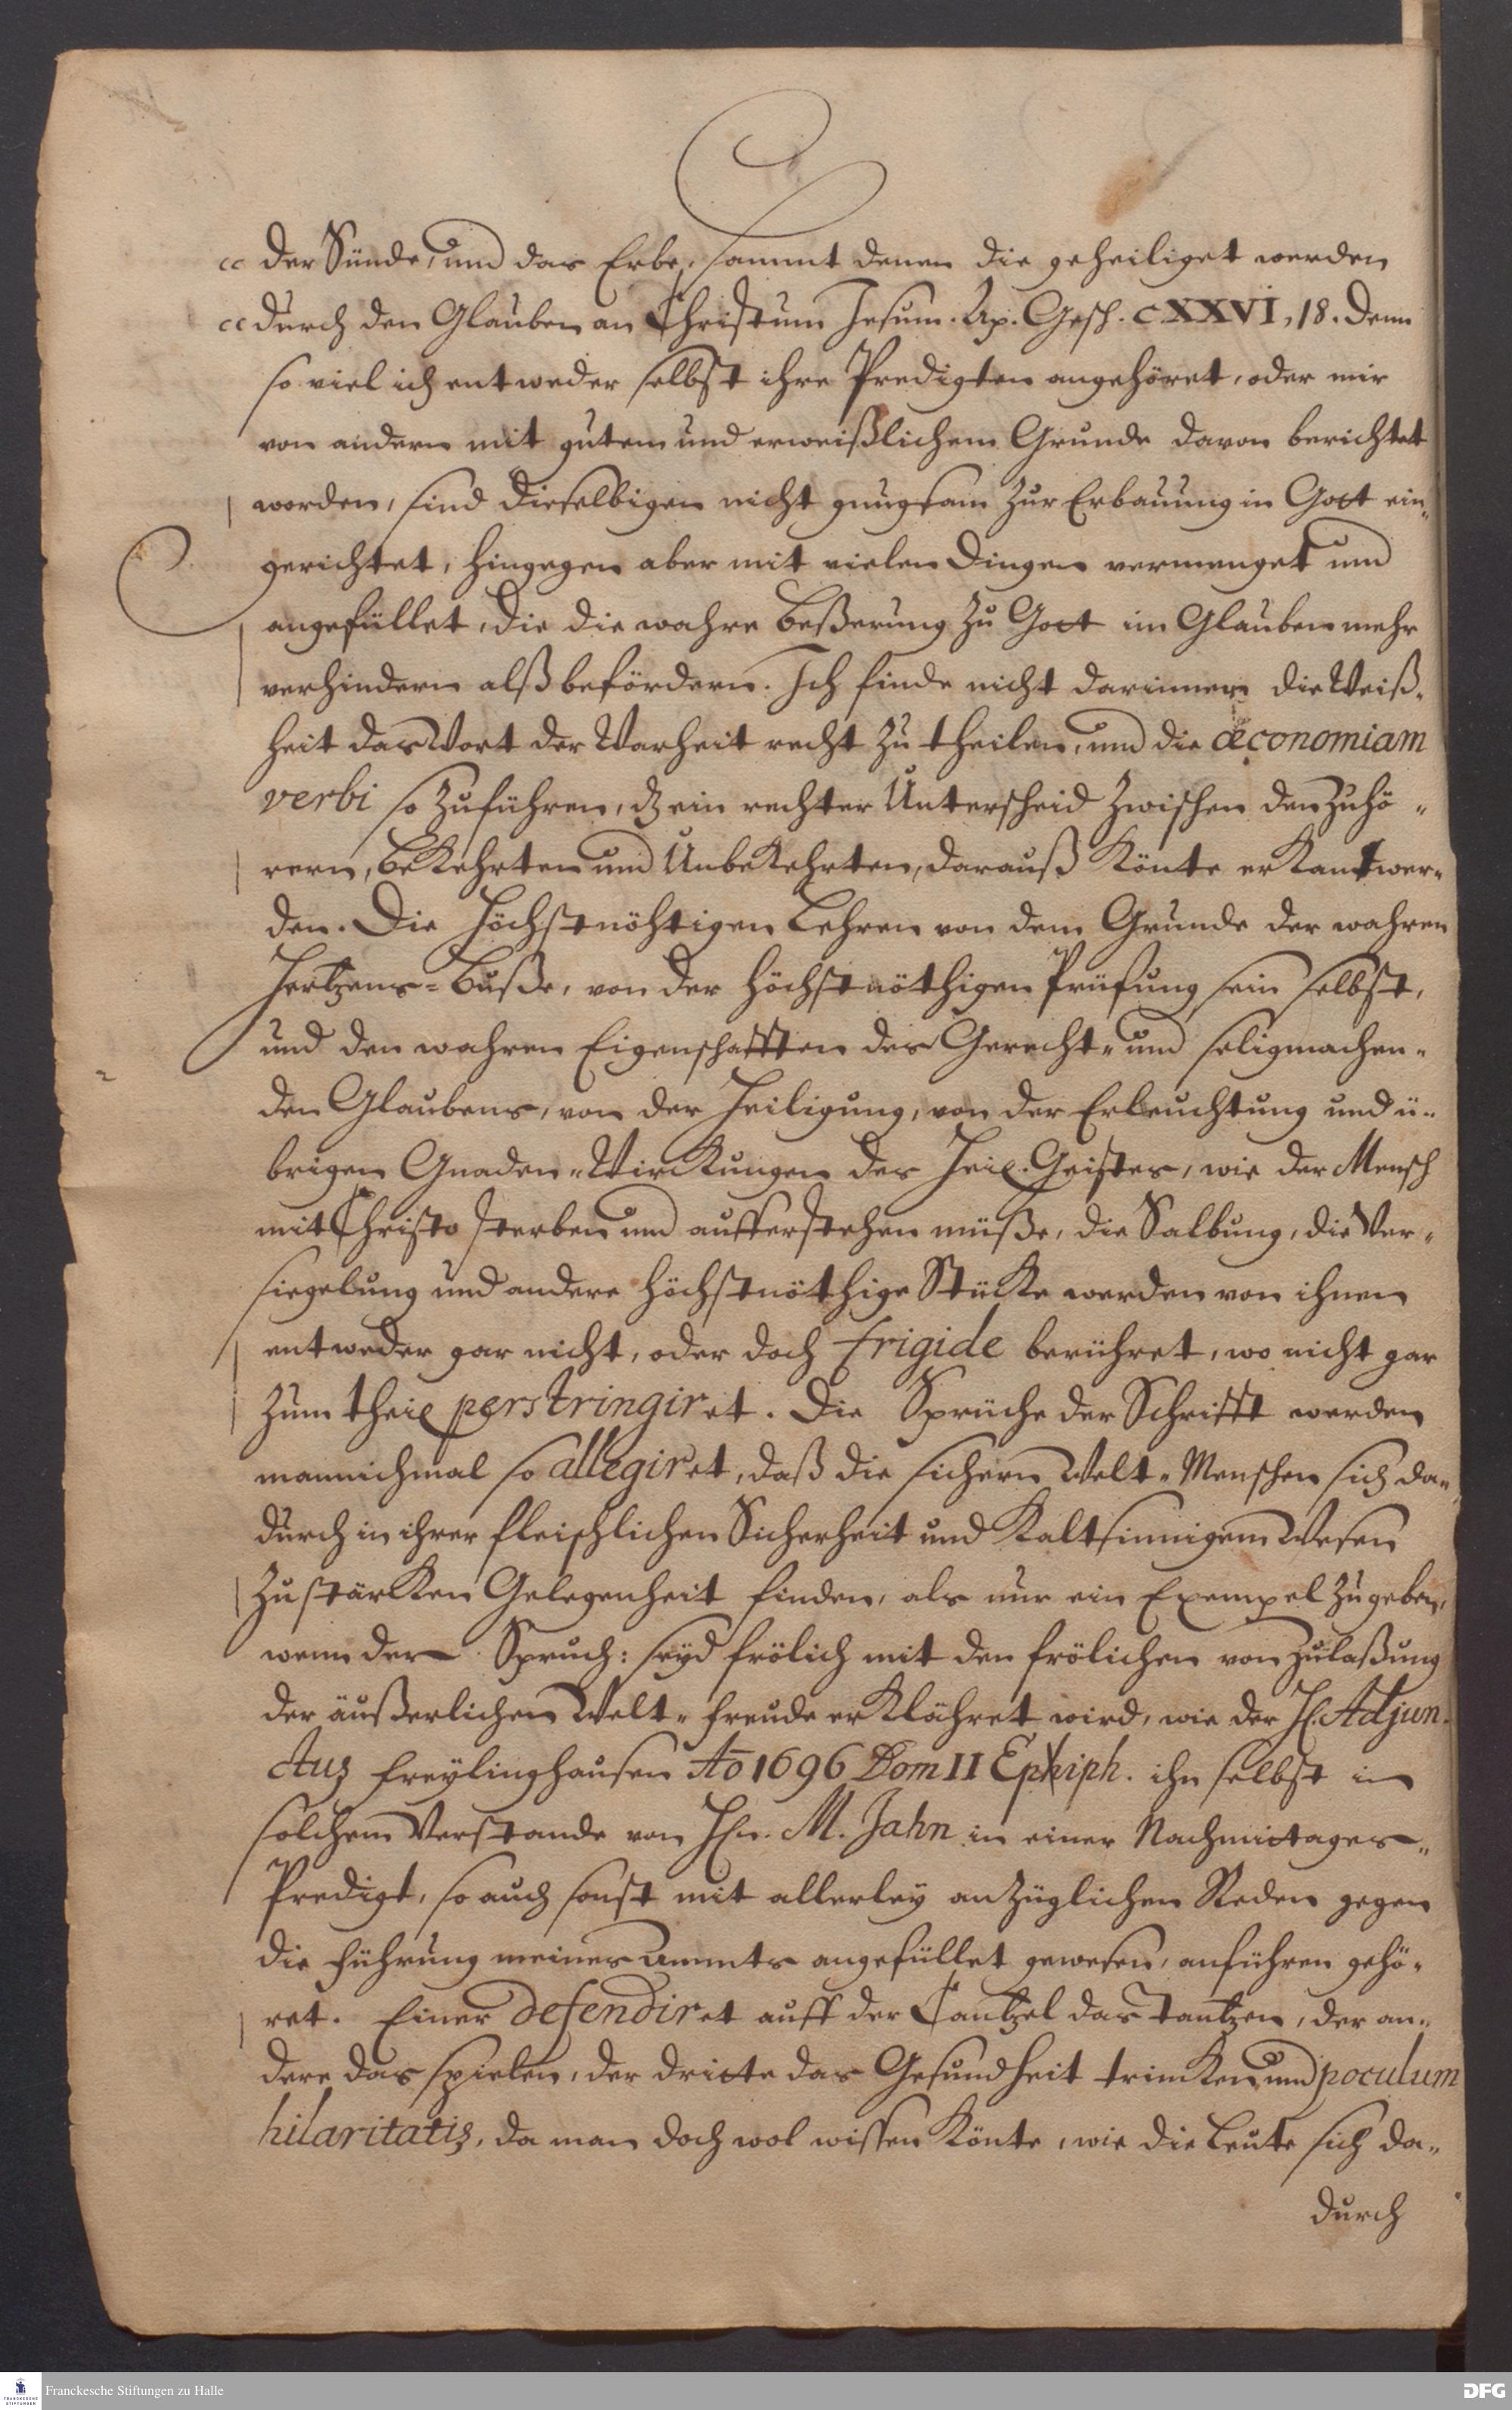 cc der Sünde, und das Erbe, sammt denen die geheiliget werden
cc durch den Glauben an Christum Jesum. Ap. Gesch. c XXVI, 18. Denn
so viel ich entweder selbst ihre Predigten angehöret, oder mir
von andern mit gutem und erweißlichem Grunde davon berichtet
worden, sind dieselbigen nicht gnugsam zur Erbauung in Gott ein„
gerichtet, hingegen aber mit vielen Dingen vermenget und
angefüllet, die die wahre Beßerung zu Gott im Glauben mehr
verhindern alß befördern. Ich finde nicht darinnen die Weiß„
heit das Wort der Warheit recht zu theilen, und die œconomiam
verbi so zuführen, dz ein rechter Unterscheid zwischen den Zuhö„
rern, beKehrten und UnbeKehrten, darauß Könte erKant wer„
den. Die Höchstnöhtigen Lehren von dem Grunde der wahren
Hertzens=Buße, von der höchstnöthigen Prüfung sein selbst,
und den wahren Eigenschafften des Gerecht„ und seligmachen„
den Glaubens, von der Heiligung, von der Erleuchtung und ü„
brigen Gnaden„WirKungen des Heil. Geistes, wie der Mensch
mit Christo sterben und aufferstehen müße, die Salbung, die Ver„
siegelung und andere höchstnöthige StüKe werden von ihnen
entweder gar nicht, oder doch frigide berühret, wo nicht gar
zum theil perstringiret. Die Sprüche der Schrifft werden
mannichmal so allegiret, daß die sichern Welt„Menschen sich da„
durch in ihrer fleischlichen Sicherheit und Kaltsinnigem Wesen
zustärKen Gelegenheit finden, als nur ein Exempel zugeben,
wenn der Spruch: seyd frölich mit den frölichen von Zulaßung
der äußerlichen Welt„freude erKlähret wird, wie der H. Adjun„
ctus Freylinghausen Ao 1696 Dom II Epiph. ihn selbst in
solchem Verstande von Hn. M. Jahn in einer Nachmittages„
Predigt, so auch sonst mit allerley anzüglichen Reden gegen
die Führung meines Ammts angefüllet gewesen, anführen gehö„
ret. Einer defendiret auff der Cantzel das Tantzen, der an„
dere das spielen, der dritte das Gesundheit trinKen und poculum
hilaritatis, da man doch wol wissen Könte, wie die Leute sich da„
durch
Franckesche Stiftungen zu Halle
DFG